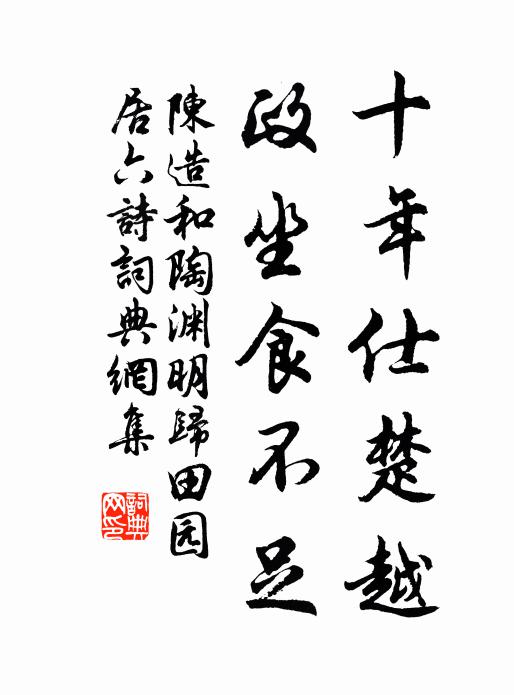 十年仕楚越
政坐食不足
陳造和陶渊明歸田园
居六詩詞典網集
詞典
网印